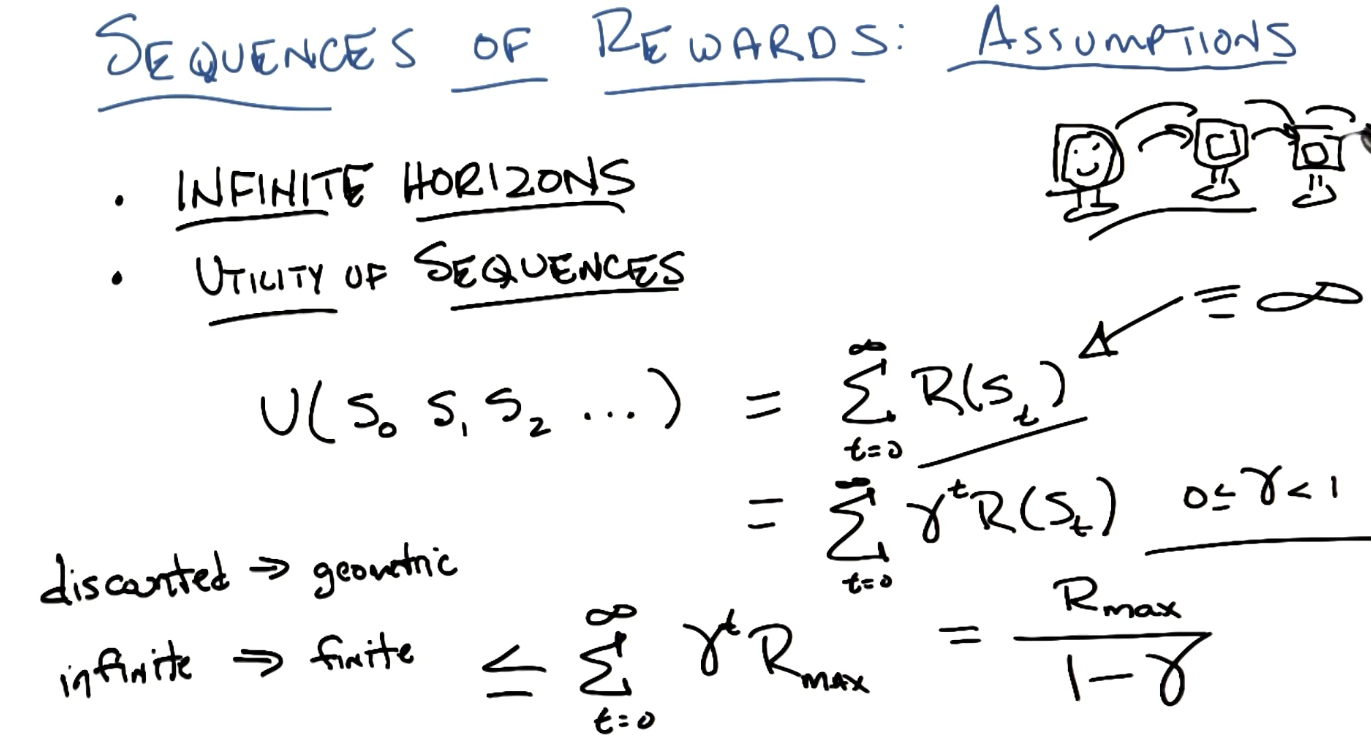 SEQUENCES OF REWARDS: ASSUMPTIONS
• INFINITE HORIZONS
• UTILITY OF SEQUENCES
≡ ∞
U(S₀ S₁ S₂ ...) = ∑_{t=0}^{∞} R(S_t)
= ∑_{t=0}^{∞} γ^t R(S_t) 0 ≤ γ < 1
discounted ⇒ geometric
infinite ⇒ finite
≤ ∑_{t=0}^{∞} γ^t R_{MAX} = R_{max} / (1 - γ)